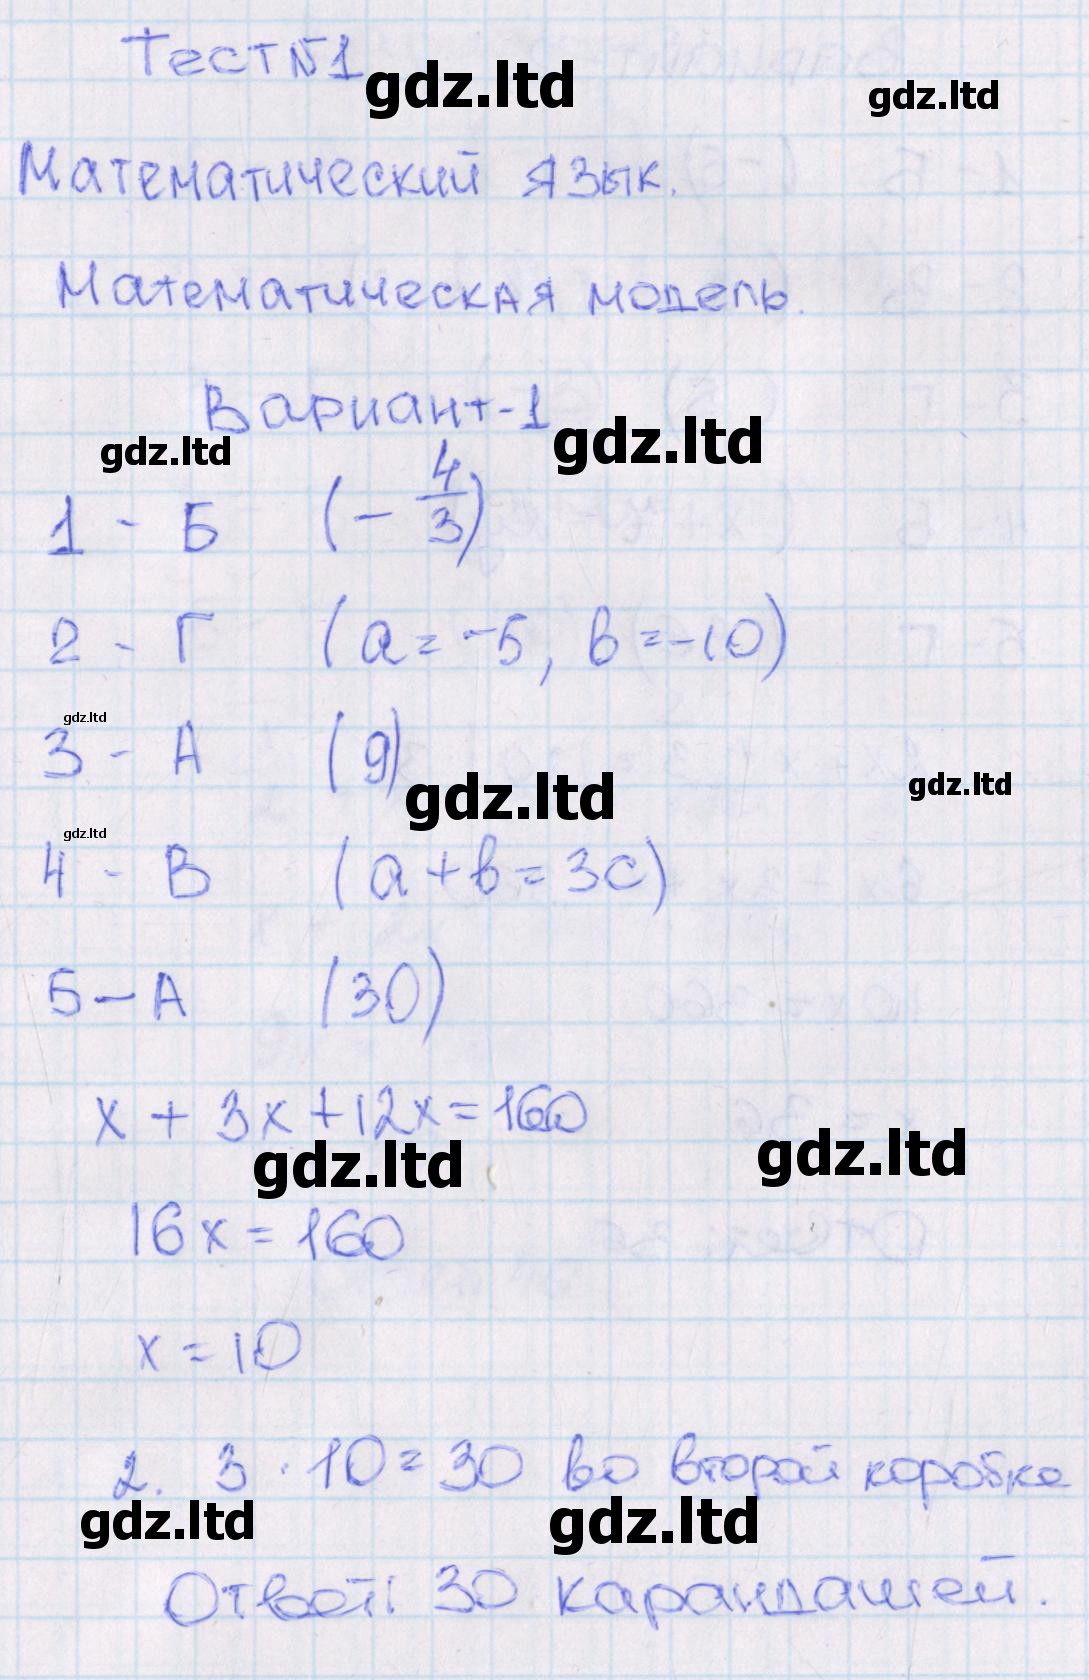 Тест №1
gdz.ltd
gdz.ltd
Математический язык.
Математическая модель.
Вариант-1
gdz.ltd
gdz.ltd
1 - Б (-4/3)
2 - Г (a = -5, b = -10)
gdz.ltd
3 - А (9)
gdz.ltd
gdz.ltd
gdz.ltd
4 - В (a + b = 3c)
5 - А (30)
x + 3x + 12x = 160
gdz.ltd
gdz.ltd
16x = 160
x = 10
2. 3 · 10 = 30 во второй коробке
gdz.ltd
gdz.ltd
Ответ: 30 карандашей.